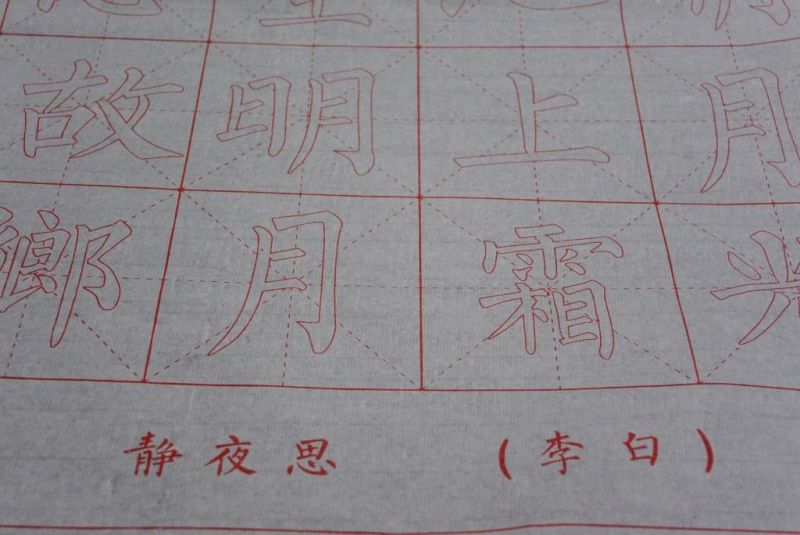 月光
上霜
明月
故鄉
静夜思 (李白)